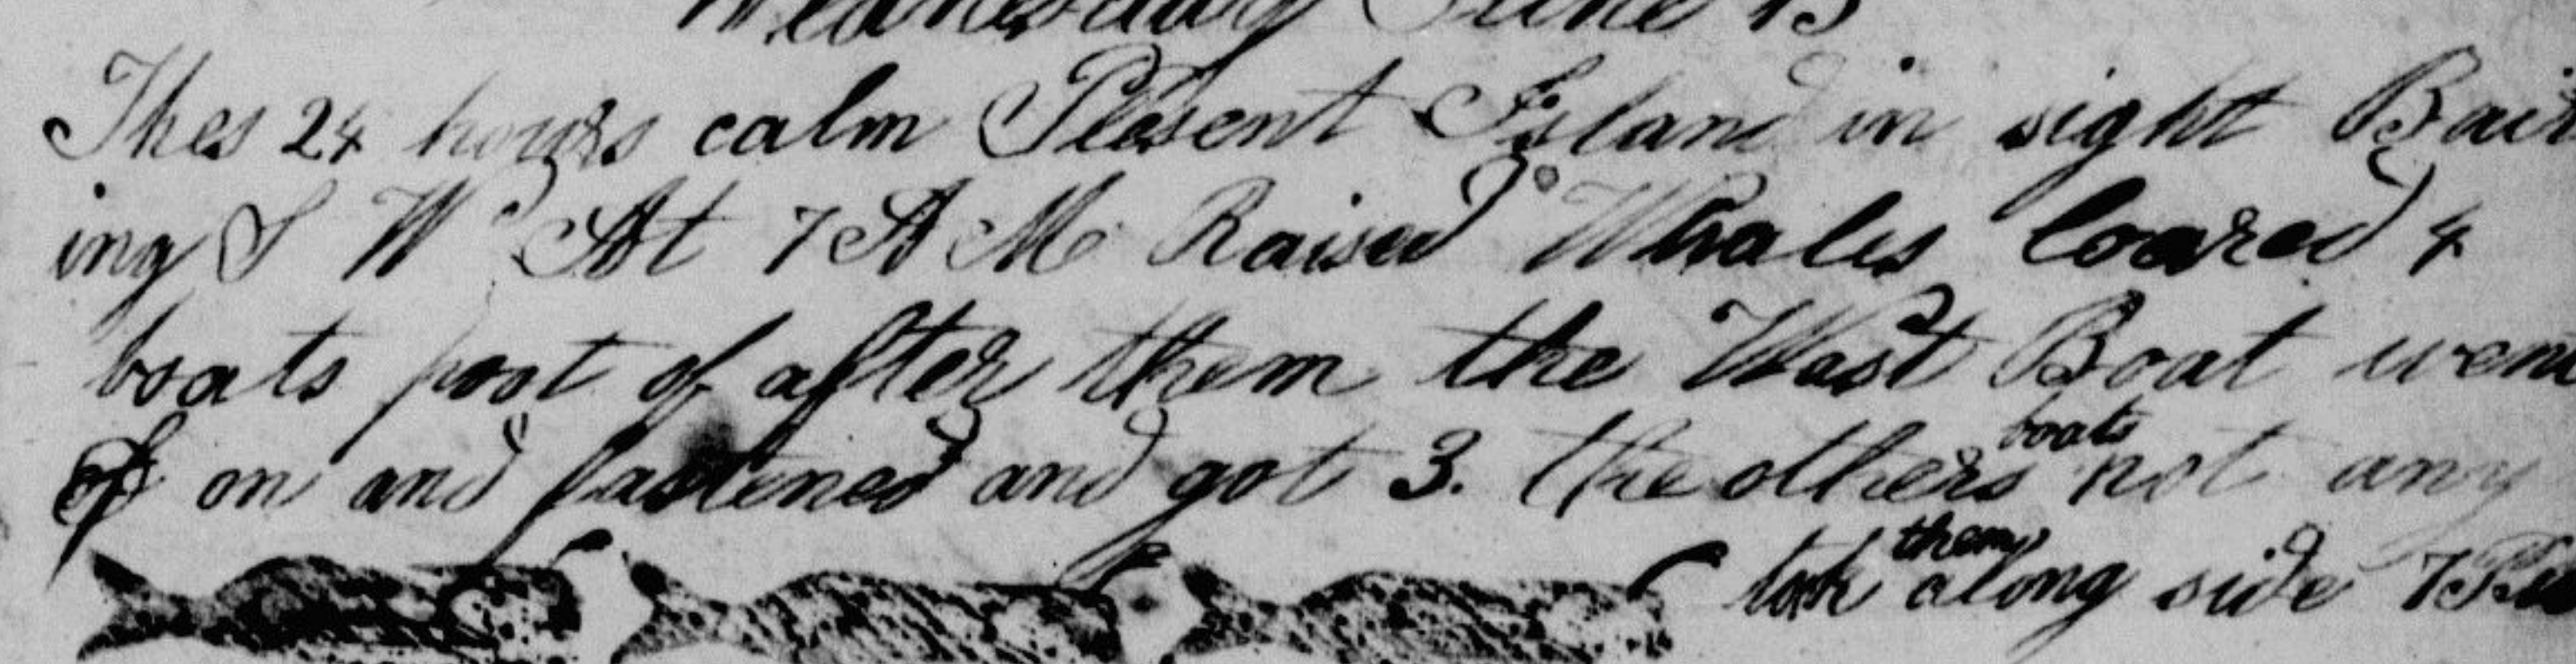 Wednesday June 13
Thes 24 hours calm Plesent Island in sight Bair
ing S W At 7 A M Raised Whales loared 4
boats poot of after them the Wast Boat went
of on and fastened and got 3. the others boats not any
took them along side 7 P M